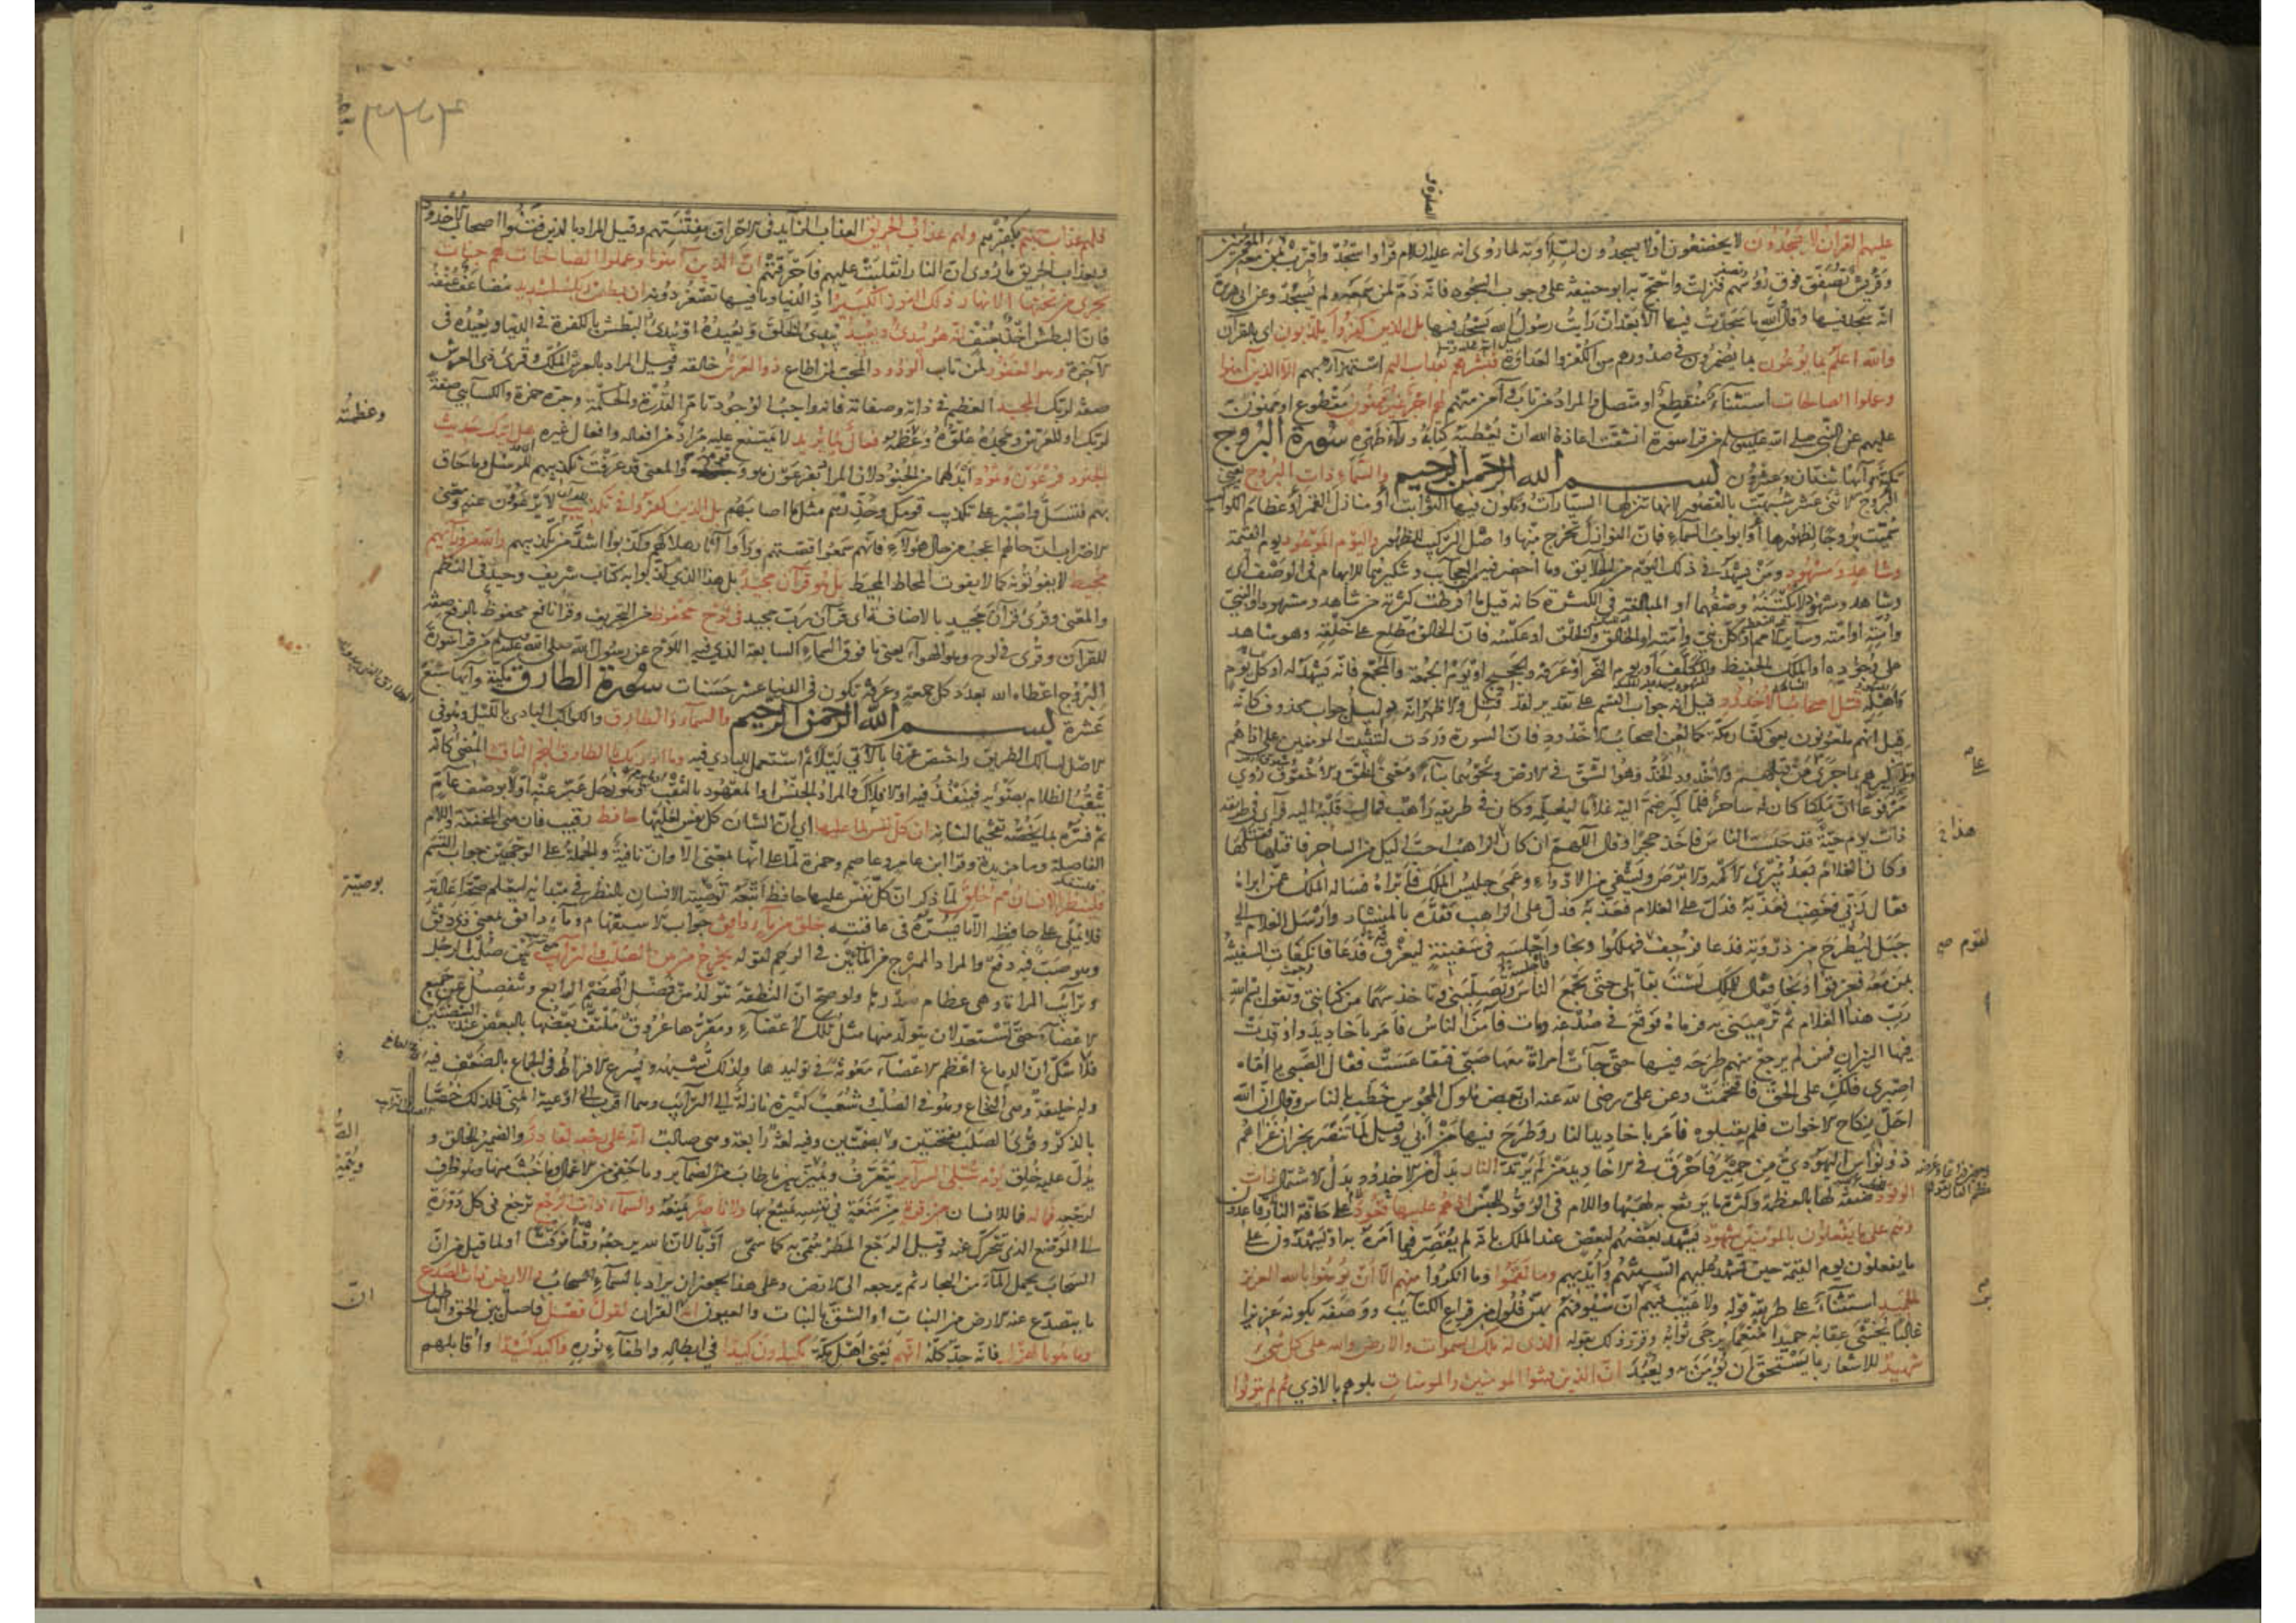 عليهم القرآن لا يسجدون لا يخضعون او لا يسجدون لتلاوته لما روى انه عليه السلام قرأ واسجد واقترب فسجد بمن معه من المؤمنين
وقريش تصفق فوق رؤسهم فنزلت واحتج به ابو حنيفة على وجوب السجود فانه ذم لمن سمعه ولم يسجد وعن ابى هريرة
انه سجد فيها وقال والله ما سجدت فيها الا بعد ان رأيت رسول الله يسجد فيها بل الذين كفروا يكذبون اى بالقرآن
والله اعلم بما يوعون بما يضمرون فى صدورهم من الكفر والعداوة فبشرهم بعذاب اليم استهزاء بهم الا الذين آمنوا
وعملوا الصالحات استثناء منقطع او متصل والمراد من تاب وآمن منهم لهم اجر غير ممنون مقطوع او ممنون
عليهم عن النبى صلى الله عليه وسلم من قرأ سورة انشقت اعاذه الله ان يعطيه كتابه وراء ظهره سورة البروج
مكية وآيها ثنتان وعشرون بسم الله الرحمن الرحيم والسماء ذات البروج يعنى
البروج الاثنى عشر شبهت بالقصور لانها تنزلها السيارات وتكون فيها الثوابت او منازل القمر او عظام الكواكب
سميت بروجا لظهورها او ابواب السماء فان النوازل تخرج منها واصل التركيب للظهور واليوم الموعود يوم القيمة
وشاهد ومشهود ومن يشهد فى ذلك اليوم من الخلايق وما احضر فيه من العجايب وتنكيرهما للابهام فى الوصف اى
وشاهد ومشهود لا يكتنه وصفهما او المبالغة فى الكثرة كانه قيل ما افرطت كثرته من شاهد ومشهود او النبى
وامته او امته وساير الامم او كل نبى وامته او الخالق والخلق او عكسه فان الخالق مطلع على خلقه وهو شاهد
على وجوده او الملك الحفيظ والمكلف او يوم النحر او عرفة والحجيج او يوم الجمعة والمجمع فانه يشهد له او كل يوم
واهله قتل اصحاب الاخدود قيل انه جواب القسم على تقدير لقد قتل والاظهر انه دليل جواب محذوف كانه
قيل انهم ملعونون يعنى كفار مكة كما لعن اصحاب الاخدود فان السورة وردت لتثبيت المؤمنين على اذاهم
وتذكيرهم بما جرى على من قبلهم والاخدود الخد وهو الشق فى الارض ونحوهما بناء ومعنى الخق والاخقوق روى
مرفوعا ان ملكا كان له ساحر فلما كبر ضم اليه غلاما ليعلمه وكان فى طريقه راهب فمال قلبه اليه فرأى فى طريقه
ذات يوم حية قد حبست الناس فاخذ حجرا وقال اللهم ان كان الراهب احب اليك من الساحر فاقتلها فقتلها
وكان الغلام بعد يبرئ الاكمه والابرص ويشفى من الادواء وعمى جليس الملك فابراه فساله الملك عمن ابراه
فقال ربى فغضب فعذبه فدل على الغلام فعذبه فدل على الراهب فقده بالمنشار وارسل الغلام الى
جبل ليطرح من ذروته فدعا فرجف فهلكوا ونجا واجلسه فى سفينة ليغرق فدعا فانكفات السفينة
بمن معه فغرقوا ونجا فقال للملك لست بقاتلى حتى تجمع الناس وتصلبنى وتاخذ سهما من كنانتى وتقول بسم الله
رب هذا الغلام ثم ترمينى به فرماه فوقع فى صدغه ومات فآمن الناس فامر باخاديد واوقدت
فيها النيران فمن لم يرجع منهم طرحه فيها حتى جاءت امراة معها صبى فتقاعست فقال الصبى يا اماه
اصبرى فانك على الحق فاقتحمت وعن على رضى الله عنه ان بعض ملوك المجوس خطب بالناس وقال ان الله
احل نكاح الاخوات فلم يقبلوه فامر باخاديد النار وطرح فيها من ابى وقيل لما تنصر نجران غزاهم
ذو نواس اليهودى من حمير فاحرق فى الاخاديد من لم يرتد النار بدل من الاخدود بدل الاشتمال ذات
الوقود صفة لها بالعظمة وكثرة ما يرتفع به لهبها واللام فى الوقود للجنس اذ هم عليها قعود على حافة النار قاعدون
وهم على ما يفعلون بالمؤمنين شهود يشهد بعضهم لبعض عند الملك بانه لم يقصر فيما امره به او يشهدون على
ما يفعلون يوم القيمة حين تشهد عليهم السنتهم وايديهم وما نقموا وما انكروا منهم الا ان يؤمنوا بالله العزيز
الحميد استثناء على طريقة قوله ولا عيب فيهم غير ان سيوفهم بهن فلول من قراع الكتايب ووصفه بكونه عزيزا
غالبا يخشى عقابه حميدا منعما يرجى ثوابه وقرر ذلك بقوله الذى له ملك السموات والارض والله على كل شئ
شهيد للاشعار بما يستحق ان يؤمن به ويعبد ان الذين فتنوا المؤمنين والمؤمنات بلوهم بالاذى ثم لم يتوبوا
عاصم
هذا فى
لقوم
٣٣٤
فلهم عذاب جهنم بكفرهم ولهم عذاب الحريق العذاب الزايد فى الاحراق بفتنتهم وقيل المراد بالذين فتنوا اصحاب الاخدود
وبعذاب الحريق ما روى ان النار انقلبت عليهم فاحرقتهم ان الذين آمنوا وعملوا الصالحات لهم جنات
تجرى من تحتها الانهار ذلك الفوز الكبير اذ الدنيا وما فيها تصغر دونه ان بطش ربك لشديد مضاعف عنفه
فان البطش اخذ بعنف انه هو يبدئ ويعيد يبدئ الخلق ويعيده او يبدئ البطش بالكفرة فى الدنيا ويعيده فى
الآخرة وهو الغفور لمن تاب الودود المحب لمن اطاع ذو العرش خالقه وقيل المراد بالعرش الملك وقرئ ذى العرش
صفة لربك المجيد العظيم فى ذاته وصفاته فانه واجب الوجود تام القدرة والحكمة وجره حمزة والكسائى صفة
لربك او للعرش ومجده علوه وعظمه فعال لما يريد لا يمتنع عليه مراد من افعاله وافعال غيره هل اتيك حديث
الجنود فرعون وثمود ابدلهما من الجنود لان المراد بفرعون هو وقومه والمعنى قد عرفت تكذيبهم للرسل وما حاق
بهم فتسل واصبر على تكذيب قومك وحذرهم مثل ما اصابهم بل الذين كفروا فى تكذيب لا يرعوون عنه ومعنى
الاضراب ان حالهم اعجب من حال هؤلاء فانهم سمعوا قصتهم ورأوا آثار هلاكهم وكذبوا اشد من تكذيبهم والله من ورائهم
محيط لا يفوتونه كما لا يفوت المحاط المحيط بل هو قرآن مجيد بل هذا الذى كذبوا به كتاب شريف وحيد فى النظم
والمعنى وقرئ قرآن مجيد بالاضافة اى قرآن رب مجيد فى لوح محفوظ من التحريف وقرأ نافع محفوظ بالرفع صفة
للقرآن وقرئ فى لوح وهو الهواء يعنى ما فوق السماء السابعة الذى فيه اللوح عن رسول الله صلى الله عليه وسلم من قرأ سورة
البروج اعطاه الله بعدد كل جمعة وعرفة تكون فى الدنيا عشر حسنات سورة الطارق مكية وآيها سبع
عشرة بسم الله الرحمن الرحيم والسماء والطارق والكوكب البادى بالليل وهو فى
الاصل لسالك الطريق واختص عرفا بالآتى ليلا ثم استعمل للبادى فيه وما ادريك ما الطارق النجم الثاقب المضئ كانه
يثقب الظلام بضوئه فينفذ فيه او الافلاك والمراد الجنس او المعهود بالثقب وهو زحل عبر عنه اولا بوصف عام
ثم فسره بما يخصه تفخيما لشانه ان كل نفس لما عليها اى ان الشان كل نفس لعليها حافظ رقيب فان هى المخففة واللام
الفاصلة وما مزيدة وقرأ ابن عامر وعاصم وحمزة لما على انها بمعنى الا وان نافية والجملة على الوجهين جواب القسم
فلينظر الانسان مم خلق لما ذكر ان كل نفس عليها حافظ اتبعه توصية الانسان بالنظر فى مبدائه ليعلم صحة اعادته
فلا يملى على حافظه الا ما يسره فى عاقبته خلق من ماء دافق جواب الاستفهام وماء دافق بمعنى ذى دفق
وهو صب فيه دفع والمراد الممتزج من المائين فى الرحم لقوله يخرج من بين الصلب والترائب بين صلب الرجل
وترائب المراة وهى عظام صدرها ولو صح ان النطفة تتولد من فضل الهضم الرابع وتنفصل عن جميع
الاعضاء حتى تستعد لان يتولد منها مثل تلك الاعضاء ومقرها عروق ملتف بعضها بالبعض عند البيضتين
فلا شك ان الدماغ اعظم الاعضاء معونة فى توليدها ولذلك تشبهه ويسرع الافراط فى الجماع بالضعف فيه
وله خليفة وهى النخاع وهو فى الصلب وشعب كثيرة نازلة الى الترائب وهما اقرب الى اوعية المنى فلذلك خصا
بالذكر وقرئ الصلب بفتحتين والصلب بضمتين وفيه لغة رابعة وهى صالب انه على رجعه لقادر والضمير للخالق و
يدل عليه خلق يوم تبلى السرائر يتعرف ويميز بين ما طاب من الضمائر وما خفى من الاعمال وما خبث منها وهو ظرف
لرجعه فما له فما للانسان من قوة من منعة فى نفسه يمتنع بها ولا ناصر يمنعه والسماء ذات الرجع ترجع فى كل دورة
الى الموضع الذى تتحرك عنه وقيل الرجع المطر سمى به كما سمى اوبا لان الله يرجعه وقتا فوقتا او لما قيل من ان
السحاب يحمل الماء من البحار ثم يرجعه الى الارض وعلى هذا يجوز ان يراد بالسماء السحاب والارض ذات الصدع
ما يتصدع عنه الارض من النبات او الشق بالنبات والعيون انه القرآن لقول فصل فاصل بين الحق والباطل
وما هو بالهزل فانه جد كله انهم يعنى اهل مكة يكيدون كيدا فى ابطاله واطفاء نوره واكيد كيدا واقابلهم
وعظمته
ان